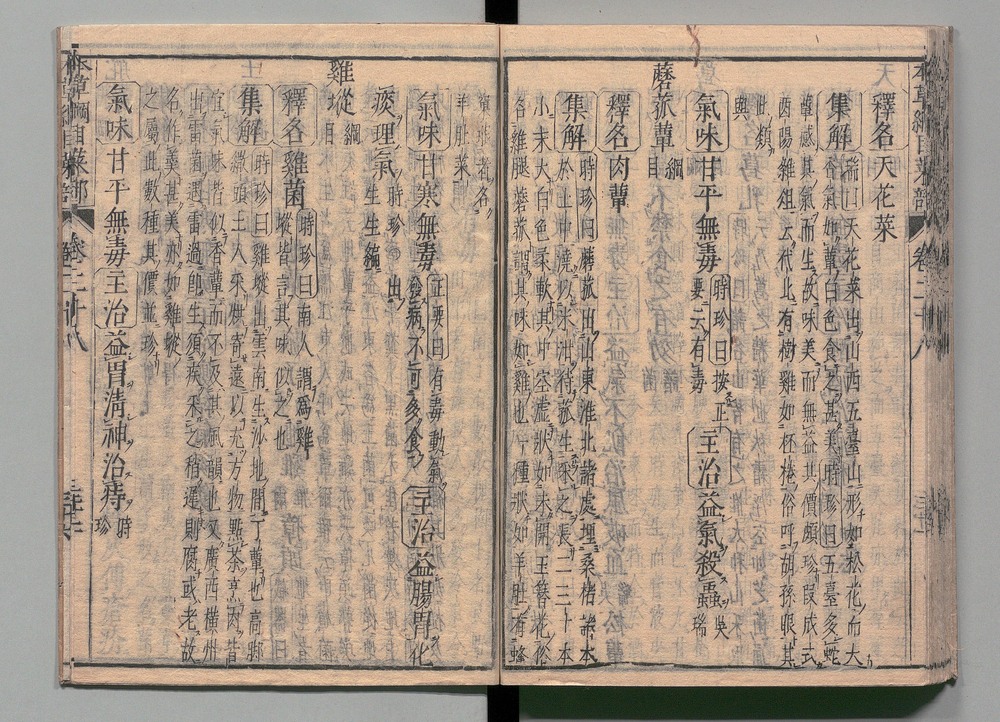 釋名天花菜
集解瑞曰天花菜出山西五臺山形如松花而大
香氣如蕈白色食之甚美時珍曰五臺多蛇
蕈感其氣而生故味美而無益其價頗珍段成式
酉陽雜俎云代北有樹雞如杯棬俗呼胡孫眼其
此類
與
氣味甘平無毒時珍曰按正
要云有毒主治益氣殺蟲吳
瑞
蘑菰蕈綱
目
釋名肉蕈
集解時珍曰蘑菰出山東淮北諸處埋桑楮諸木
於土中澆以米泔待菰生采之長二三寸本
小末大白色柔軟其中空虛狀如未開玉簪花俗
名雞腿蘑菰謂其味如雞也一種狀如羊肚有蜂
窠眼者名
羊肚菜
氣味甘寒無毒正要曰有毒動氣
發病不可多食主治益腸胃化
痰理氣時珍 出
生生編
雞㙡綱
目
釋名雞菌時珍曰南人謂爲雞
㙡皆言其味似之也
集解時珍曰雞㙡出雲南生沙地間丁蕈也高脚
繖頭土人采烘寄遠以充方物點茶烹肉皆
宜氣味皆似香蕈而不及其風韻也又廣西橫州
出雷菌遇雷過即生須疾采之稍遲則腐或老故
名作羹甚美亦如雞㙡
之屬此數種其價並珍
氣味甘平無毒主治益胃清神治痔時
珍
本草綱目菜部 卷二十八